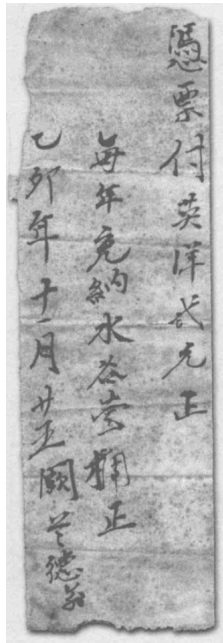 憑票付英洋弍元正
每年充納水谷壹桶正
乙卯年十二月廿五闕德